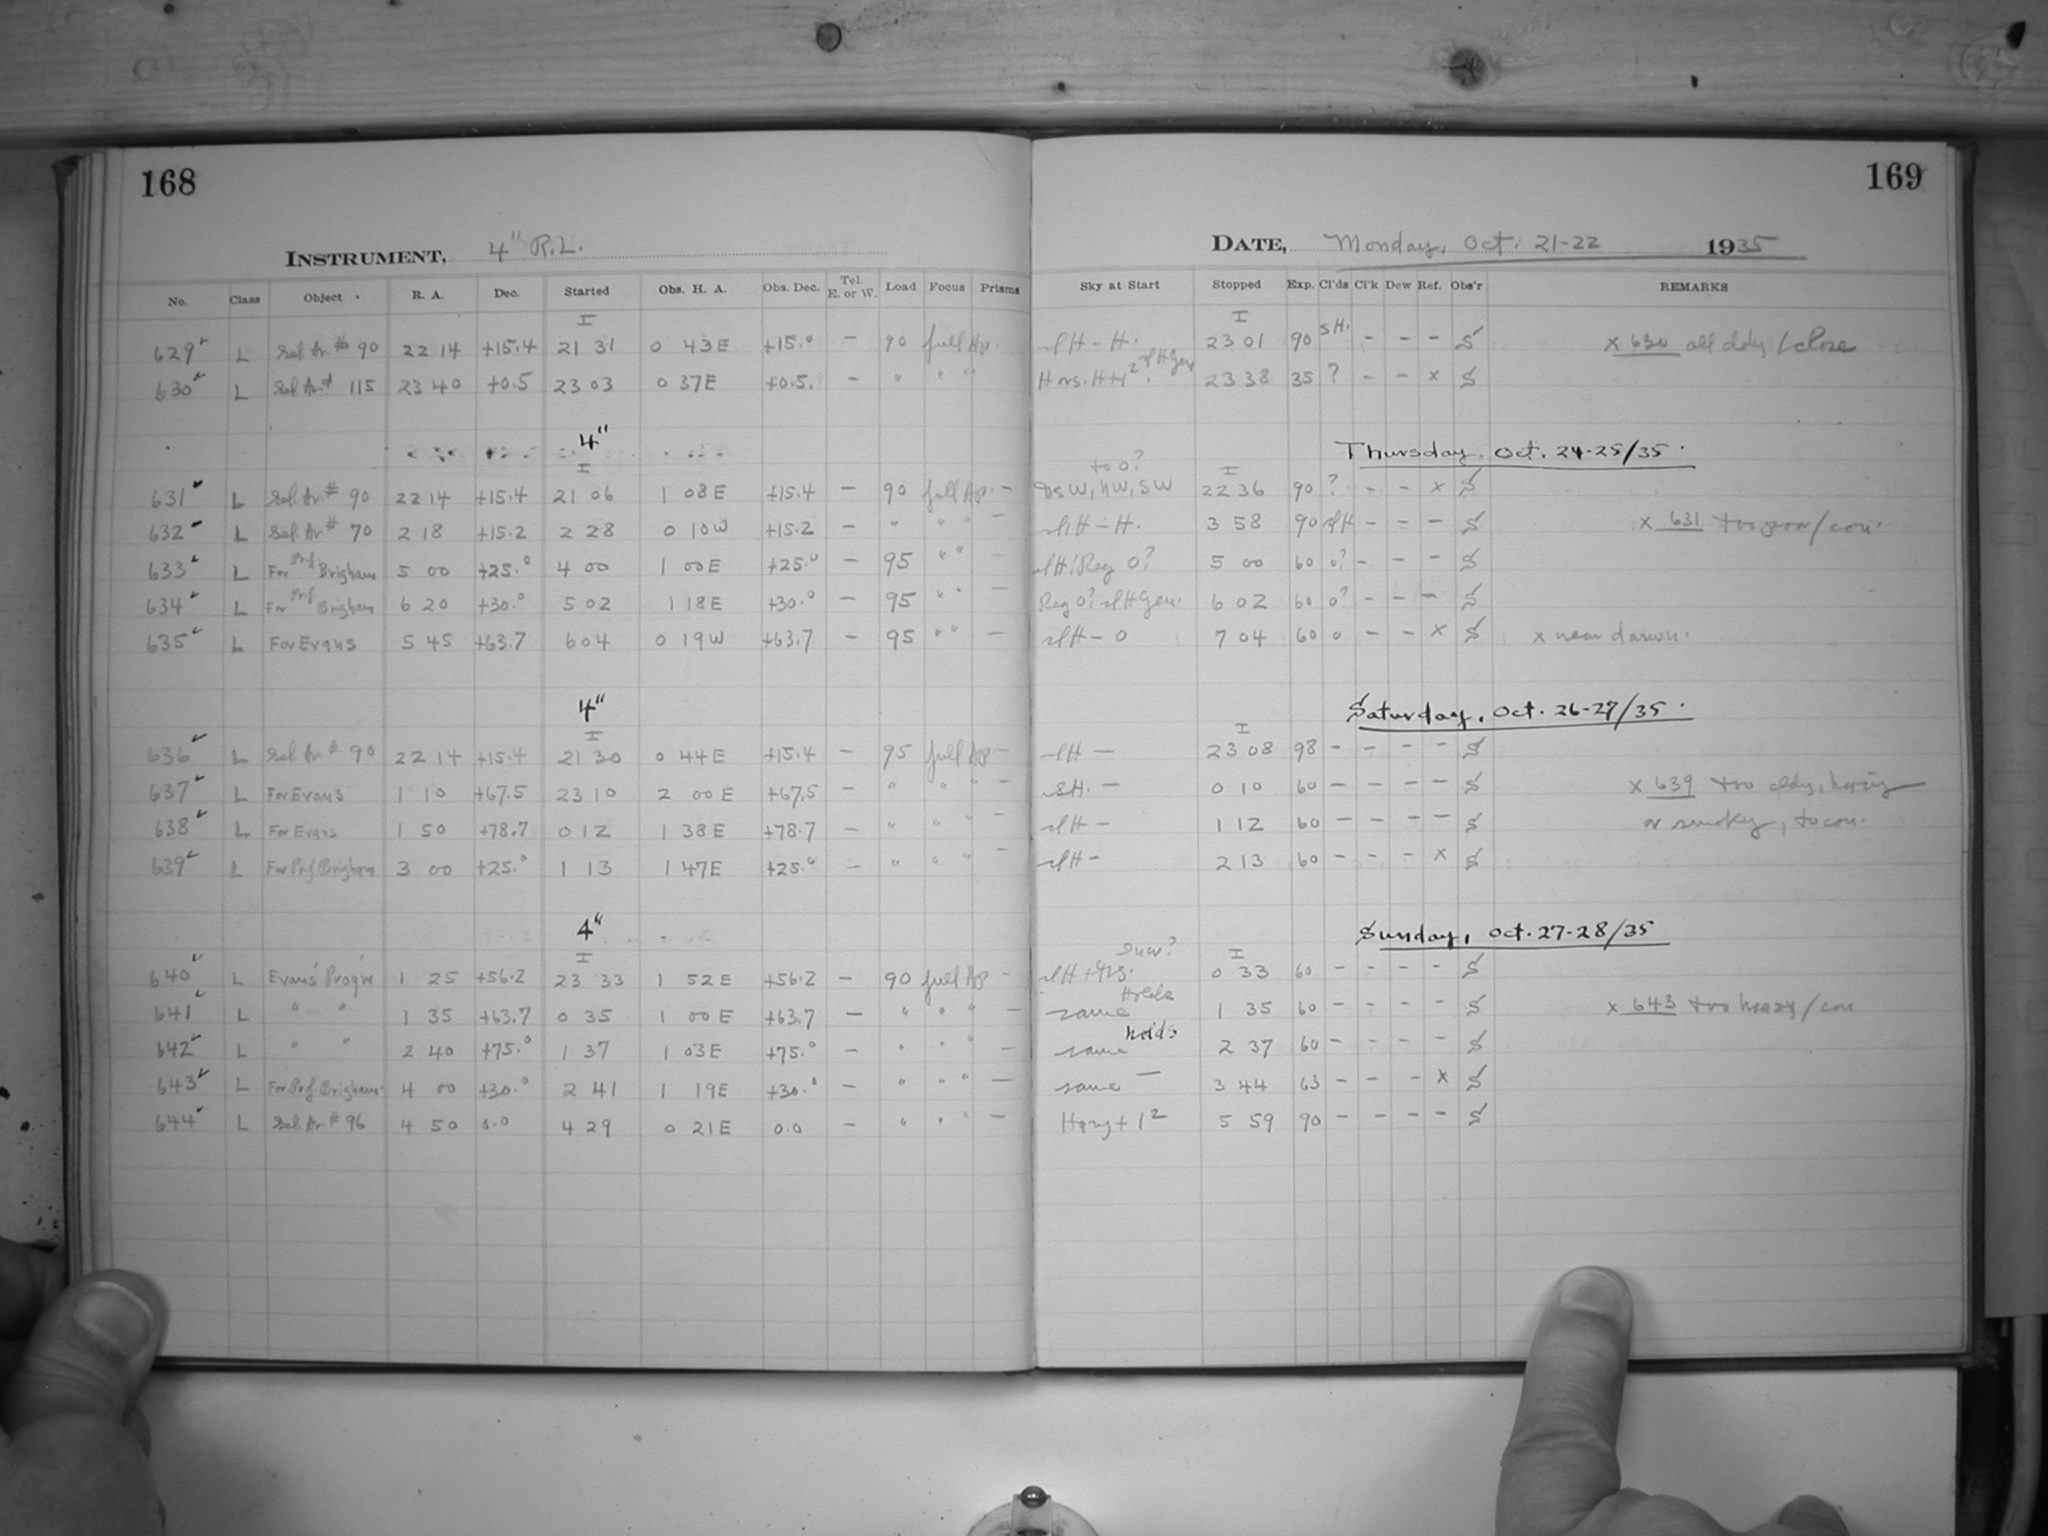 168
169
INSTRUMENT, 4" R.L.
DATE, Monday, Oct. 21-22 1935
No. Class Object R. A. Dec. Started Obs. H. A. Obs. Dec. Tel. E. or W. Load Focus Prisms Sky at Start Stopped Exp. Cl'ds Cl'k Dew Ref. Obs'r REMARKS
I I
629 L Sel. Ar. # 90 22 14 +15.4 21 31 0 43 E +15.0 - 90 full Ap. slH - H. 23 01 90 sH. - - - S x 630 all cldy / close
630 L Sel. Ar. # 115 23 40 +0.5 23 03 0 37 E +0.5. - " " " 23 38 35 ? - - x S
4" Thursday, Oct. 24-25/35.
I to 0? I
631 L Sel. Ar. # 90 22 14 +15.4 21 06 1 08 E +15.4 - 90 full Ap. - W, NW, SW 22 36 90 ? - - x S
632 L Sel. Ar. # 70 2 18 +15.2 2 28 0 10 W +15.2 - " " " - slH - H. 3 58 90 slH - - - S x 631 too poor / con.
633 L For Prf Brigham 5 00 +25.0 4 00 1 00 E +25.0 - 95 " " - slH! Reg 0? 5 00 60 0? - - - S
634 L For Prf Brigham 6 20 +30.0 5 02 1 18 E +30.0 - 95 " " - Reg 0? slH Gen. 6 02 60 0? - - - S
635 L For Evans 5 45 +63.7 6 04 0 19 W +63.7 - 95 " " - slH - 0 7 04 60 0 - - x S x near dawn.
4" Saturday, Oct. 26-27/35.
I I
636 L Sel. Ar # 90 22 14 +15.4 21 30 0 44 E +15.4 - 95 full Ap - slH - 23 08 98 - - - - S
637 L For Evans 1 10 +67.5 23 10 2 00 E +67.5 - " " " - slH. - 0 10 60 - - - - S x 639 too cldy, hazy
638 L For Evans 1 50 +78.7 0 12 1 38 E +78.7 - " " " - slH - 1 12 60 - - - - S or smoky, to con.
639 L For Prf Brigham 3 00 +25.0 1 13 1 47 E +25.0 - " " " - slH - 2 13 60 - - - x S
4" Sunday, Oct. 27-28/35
I I
640 L Evans' Progrm 1 25 +56.2 23 33 1 52 E +56.2 - 90 full Ap - slH + 0 33 60 - - - - S
641 L " " 1 35 +63.7 0 35 1 00 E +63.7 - " " " - same Holds 1 35 60 - - - - S x 643 too hazy / con
642 L " " 2 40 +75.0 1 37 1 03 E +75.0 - " " " - same holds 2 37 60 - - - - S
643 L For Prf Brigham 4 00 +30.0 2 41 1 19 E +30.0 - " " " - same - 3 44 63 - - - x S
644 L Sel. Ar # 96 4 50 0.0 4 29 0 21 E 0.0 - " " " - Hazy + 1² 5 59 90 - - - - S